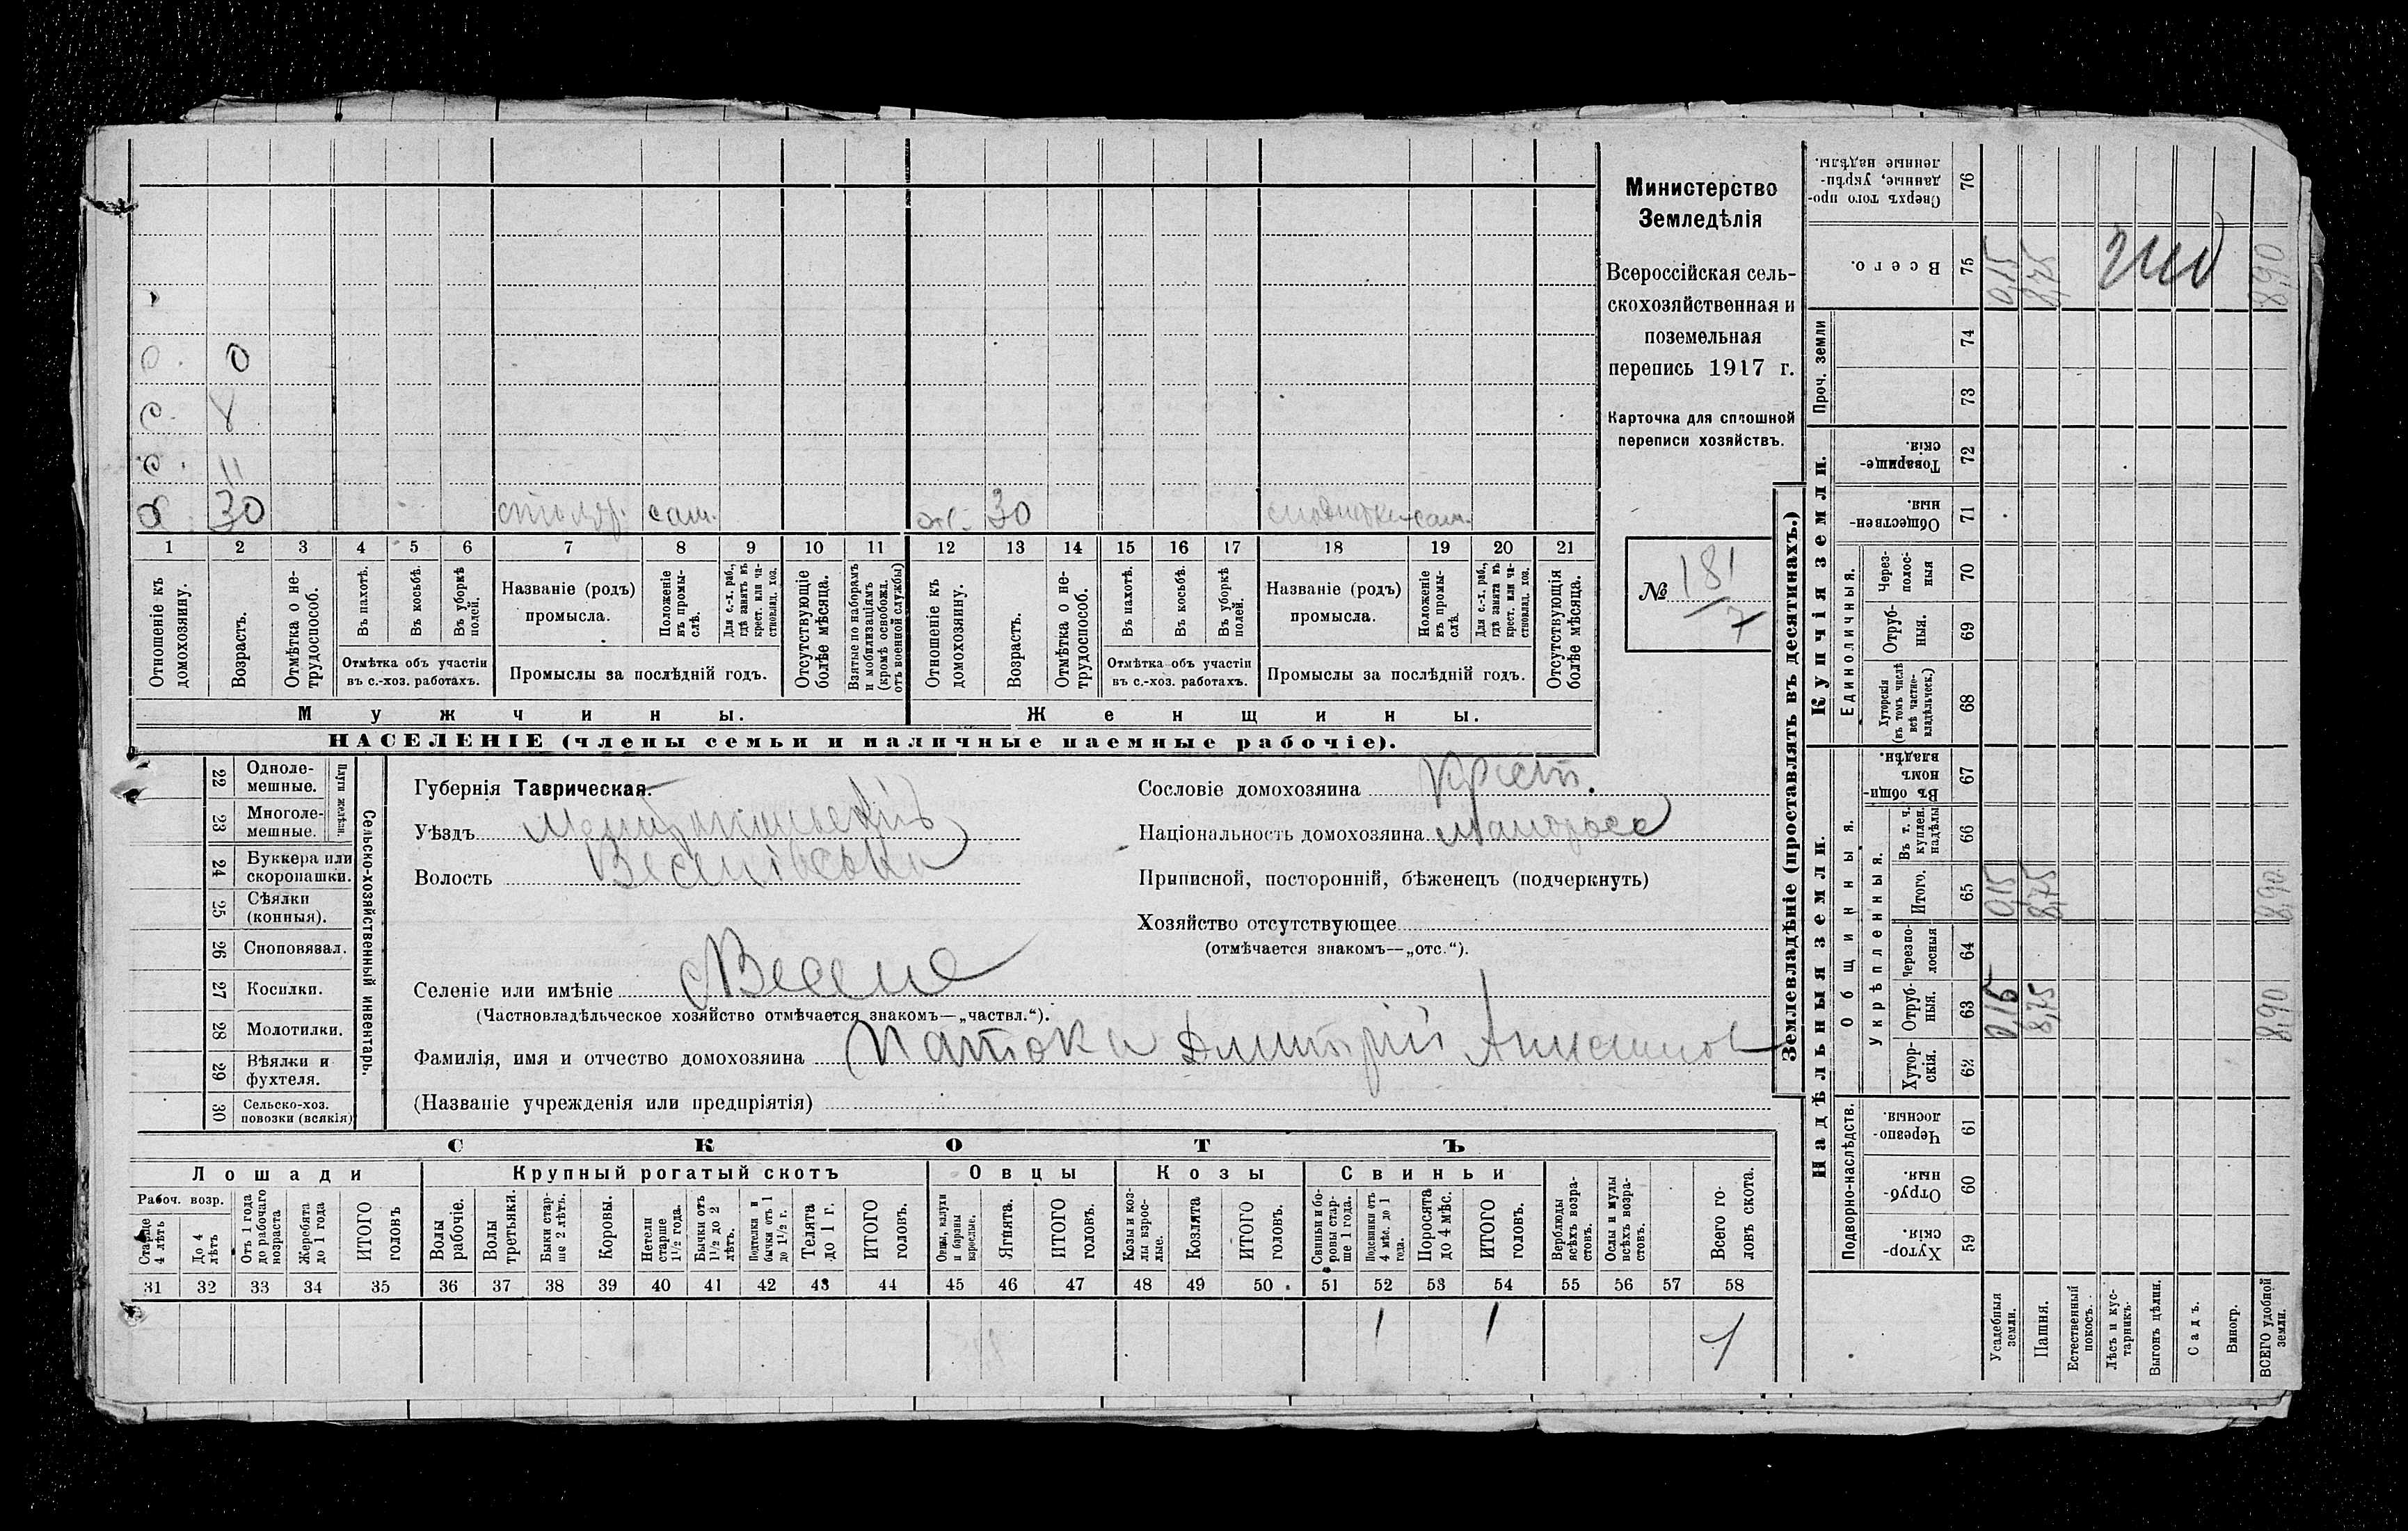 о. 0
с. 8
с. 11
х 30 столяр. сам. ж. 30 сам.
1 2 3 4 5 6 7 8 9 10 11 12 13 14 15 16 17 18 19 20 21
Отношеніе къ домохозяину.
Возрастъ.
Отмѣтка о не-трудоспособ.
Въ пахотѣ.
Въ косьбѣ.
Въ уборкѣ полей.
Отмѣтка объ участіи въ с.-хоз. работахъ.
Названіе (родъ) промысла.
Положеніе въ промы-слѣ.
Для с.-х. раб., гдѣ занятъ въ крест. или ча-стновлад. хоз.
Промыслы за послѣдній годъ.
Отсутствующіе болѣе мѣсяца.
Взятые по наборамъ и мобилизаціямъ (кромѣ освобожд. отъ военной службы)
Отношеніе къ домохозяину.
Возрастъ.
Отмѣтка о не-трудоспособ.
Въ пахотѣ.
Въ косьбѣ.
Въ уборкѣ полей.
Отмѣтка объ участіи въ с.-хоз. работахъ.
Названіе (родъ) промысла.
Положеніе въ промы-слѣ.
Для с.-х. раб., гдѣ занята въ крест. или ча-стновлад. хоз.
Промыслы за послѣдній годъ.
Отсутствующія болѣе мѣсяца.
Мужчины. Женщины.
НАСЕЛЕНІЕ (члены семьи и наличные наемные рабочіе).
Министерство
Земледѣлія
Всероссійская сель-
скохозяйственная и
поземельная
перепись 1917 г.
Карточка для сплошной
переписи хозяйствъ.
№ 181
7
22 Одноле-мешные.
23 Многоле-мешные.
Плуги желѣзн.
24 Буккера или скоропашки.
25 Сѣялки (конныя).
26 Сноповязал.
27 Косилки.
28 Молотилки.
29 Вѣялки и фухтеля.
30 Сельско-хоз. повозки (всякія)
Сельско-хозяйственный инвентарь.
Губернія Таврическая.
Уѣздъ Мелитопольскій
Волость Веселовская
Сословіе домохозяина Крест.
Національность домохозяина Малоросс
Приписной, посторонній, бѣженецъ (подчеркнуть)
Хозяйство отсутствующее
(отмѣчается знакомъ—„отс.“).
Селеніе или имѣніе с. Веселое
(Частновладѣльческое хозяйство отмѣчается знакомъ—„частвл.“).
Фамилія, имя и отчество домохозяина Патока Дмитрій Анисимов
(Названіе учрежденія или предпріятія)
СКОТЪ
Лошади Крупный рогатый скотъ Овцы Козы Свиньи
Рабоч. возр.
Старше 4 лѣтъ
До 4 лѣтъ
Отъ 1 года до рабочаго возраста
Жеребята до 1 года
ИТОГО головъ
Волы рабочіе.
Волы третьяки.
Быки стар-ше 2 лѣтъ.
Коровы.
Нетели старше 1 1/2 года.
Бычки отъ 1 1/2 до 2 лѣтъ.
Подтелки и бычки отъ 1 до 1 1/2 г.
Телята до 1 г.
ИТОГО головъ.
Овцы, валухи и бараны взрослые.
Ягнята.
ИТОГО головъ.
Козы и коз-лы взрос-лые.
Козлята
ИТОГО головъ.
Свиньи и бо-ровы стар-ше 1 года.
Подсвинки отъ 4 мѣс. до 1 года.
Поросята до 4 мѣс.
ИТОГО головъ.
Верблюды всѣхъ возра-стовъ.
Ослы и мулы всѣхъ возра-стовъ.
Всего го-ловъ скота.
31 32 33 34 35 36 37 38 39 40 41 42 43 44 45 46 47 48 49 50 51 52 53 54 55 56 57 58
1 1 1
Землевладѣніе (проставлять въ десятинахъ.)
Купчія земли.
Надѣльныя земли.
Сверхъ того про-данные, укрѣп-ленные надѣлы. 76
Всего. 75 0,15 8,75 8,90
Проч. земли 74
73
Товарище-скія. 72
Обществен-ныя. 71
Единоличныя.
Через-полос-ныя 70
Отруб-ныя. 69
Хуторскія (въ томъ числѣ всѣ частно-владѣльческ.) 68
Общинныя.
Въ общи-номъ владѣн. 67
Укрѣпленныя.
Въ т. ч. куплен. надѣлы 66
Итого. 65 0,15 8,75 8,90
Черезпо-лосныя 64
Отруб-ныя. 63 0,15 8,75 8,90
Хутор-скія. 62
Подворно-наслѣдств.
Черезпо-лосныя. 61
Отруб-ныя. 60
Хутор-скія. 59
Усадебныя земли.
Пашня.
Естественный покосъ.
Лѣсъ и кус-тарникъ.
Выгонъ цѣлин.
Садъ.
Виногр.
ВСЕГО удобной земли.